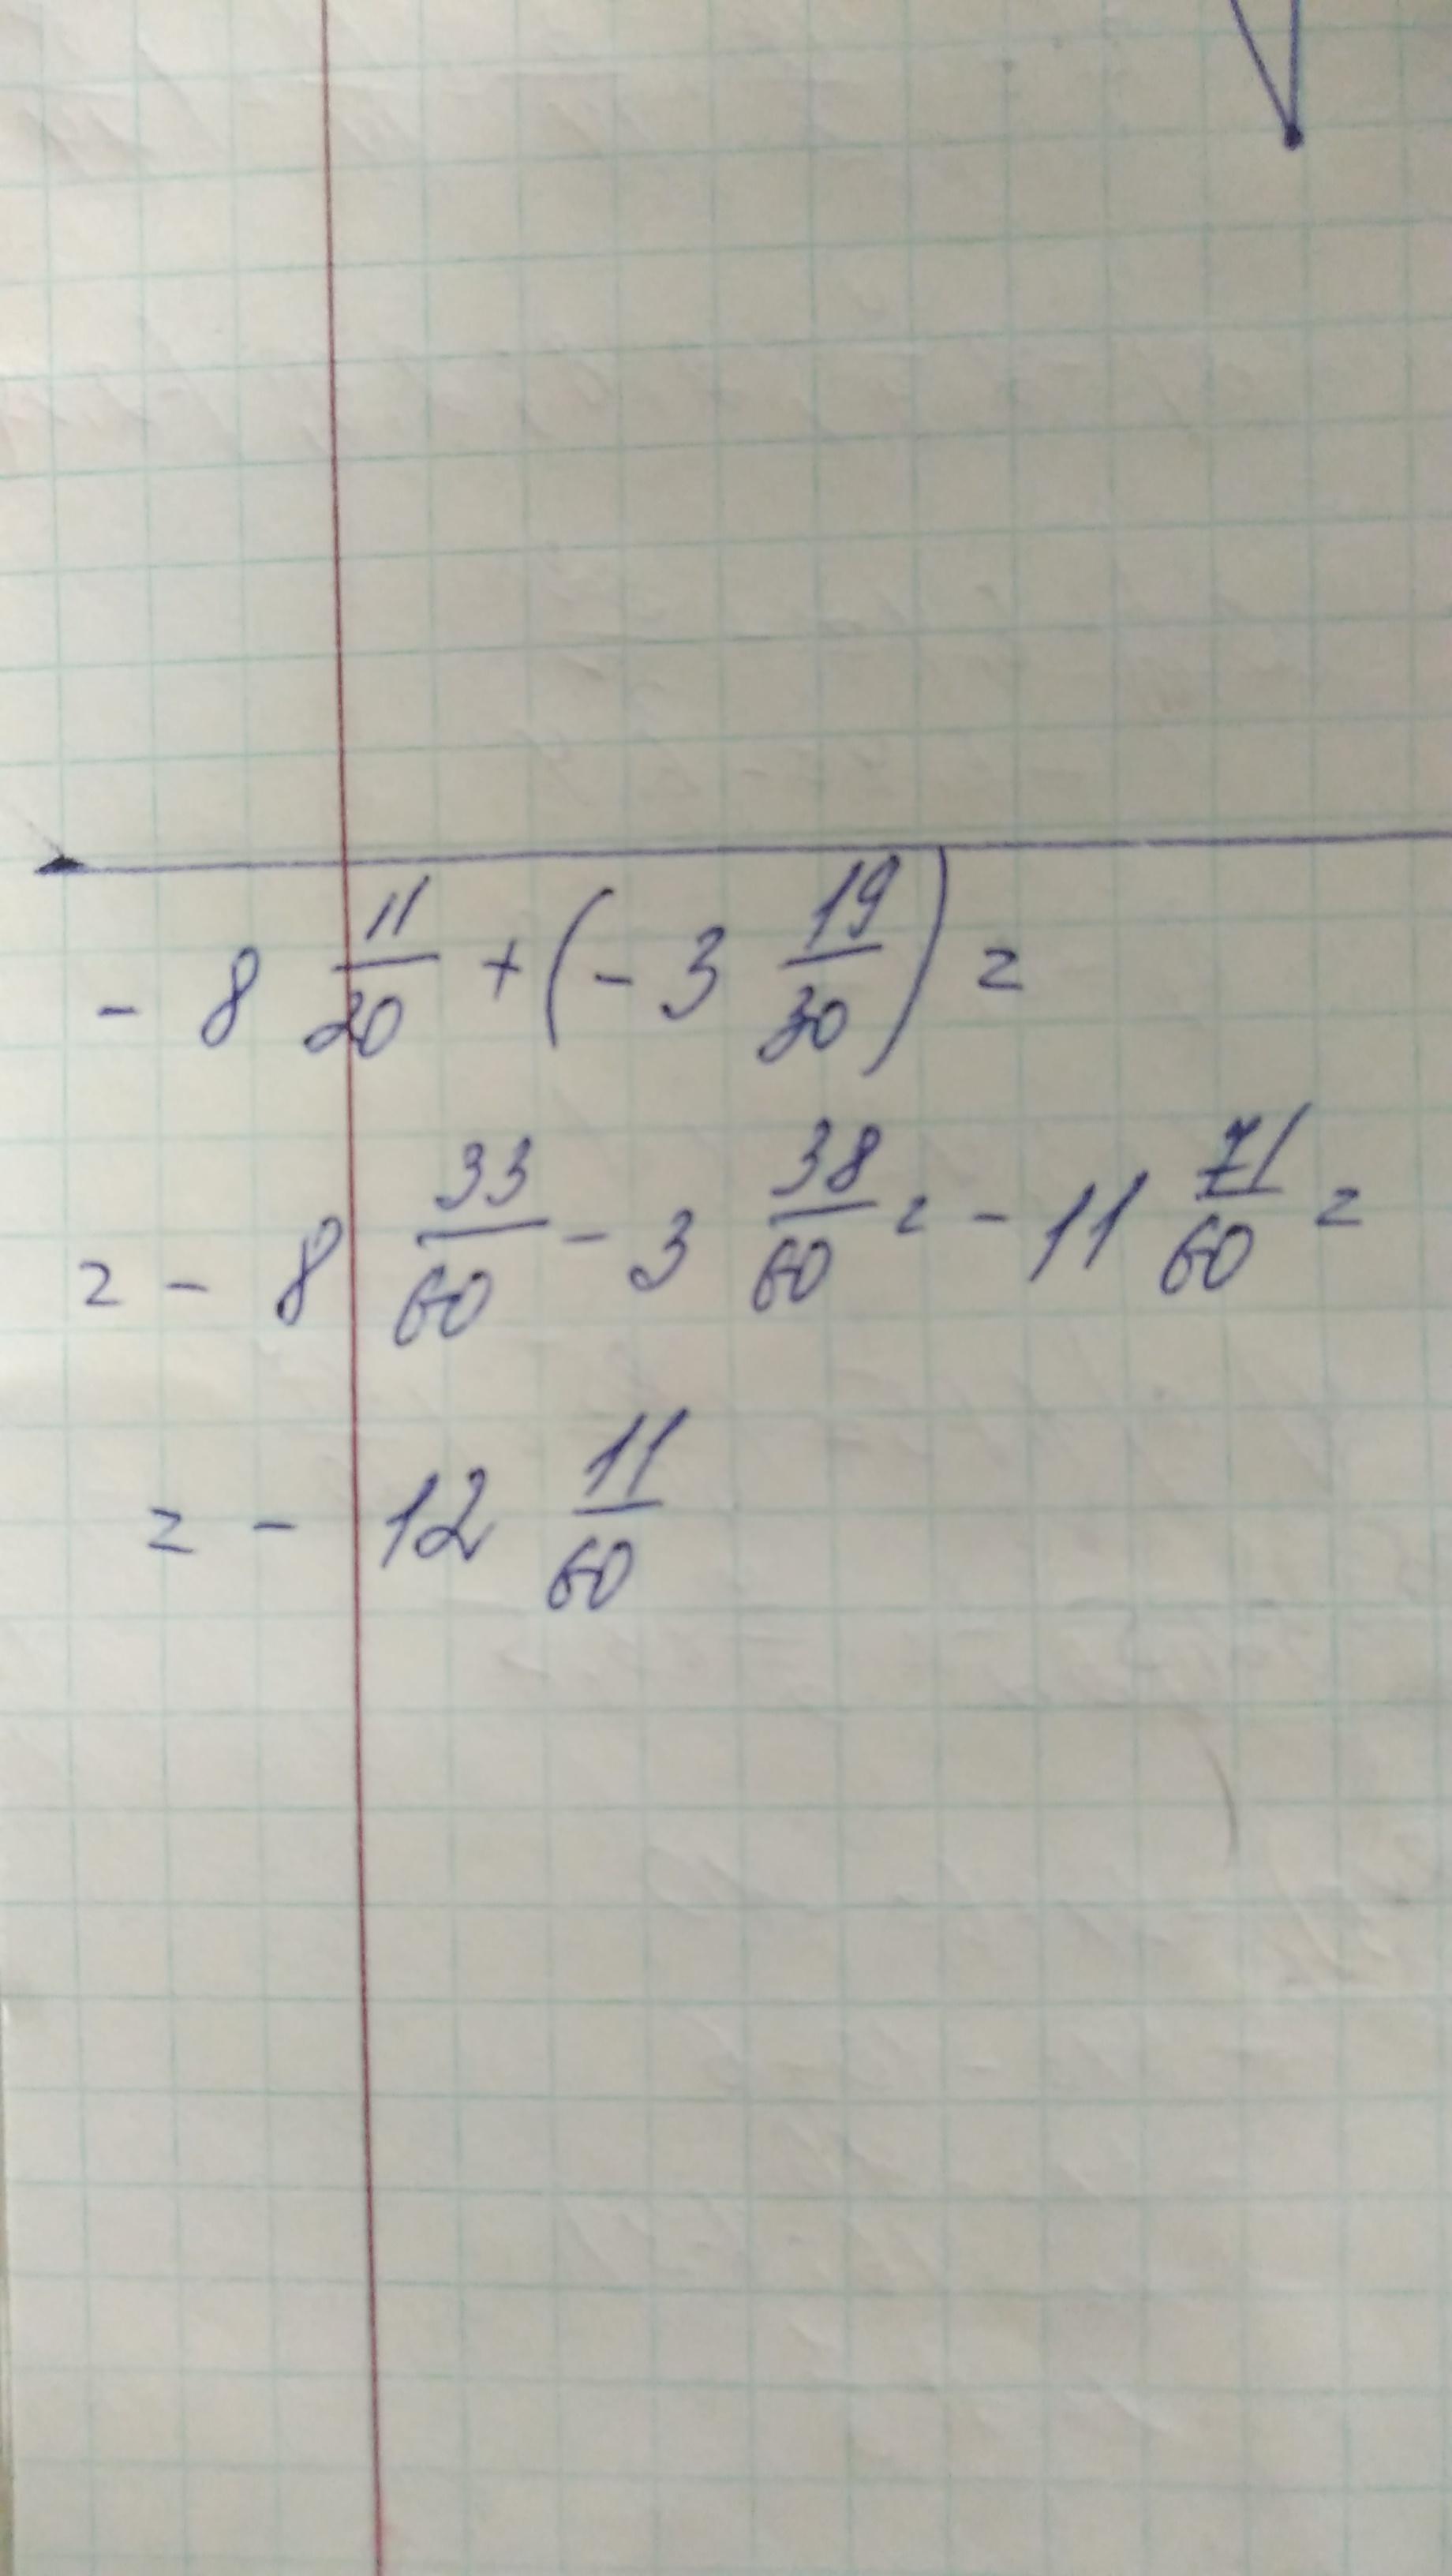 - 8 11/20 + (- 3 19/30) =
= - 8 33/60 - 3 38/60 = - 11 71/60 =
= - 12 11/60